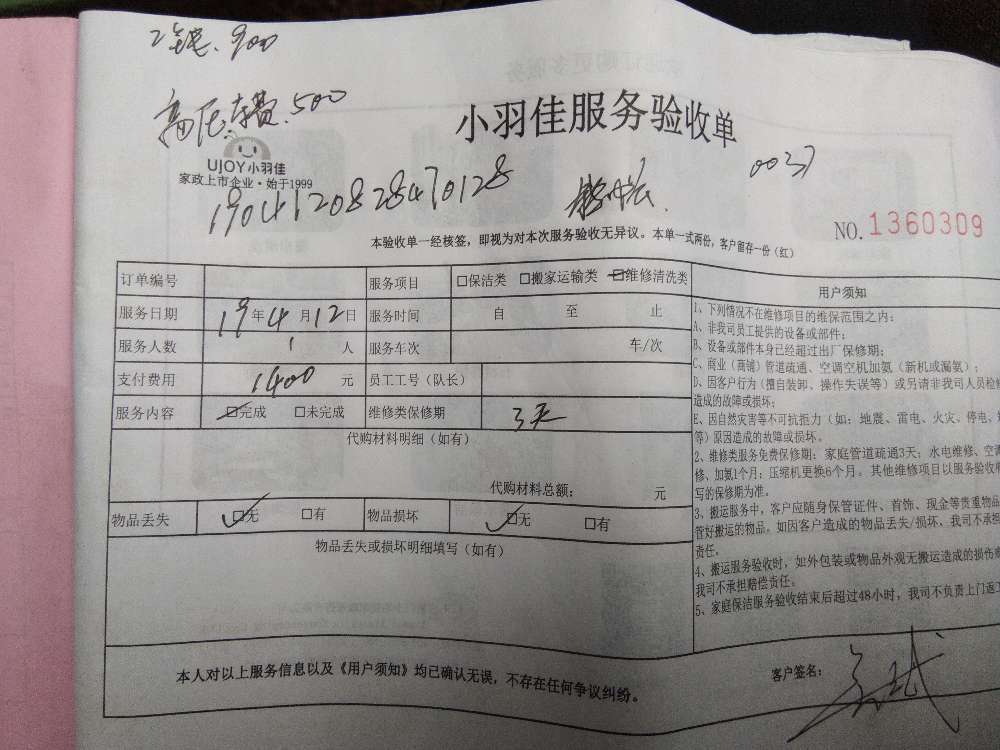 900
高压车费.500
小羽佳服务验收单
UJOY小羽佳
家政上市企业·始于1999
1904120828470128
0037
NO.1360309
本验收单一经核签，即视为对本次服务验收无异议。本单一式两份，客户留存一份（红）
订单编号 服务项目 □保洁类 □搬家运输类 □维修清洗类
服务日期 19年4月12日 服务时间 自 至 止
服务人数 1 人 服务车次 车/次
支付费用 1400 元 员工工号（队长）
服务内容 □完成 □未完成 维修类保修期 3天
代购材料明细（如有）
代购材料总额： 元
物品丢失 □无 □有 物品损坏 □无 □有
物品丢失或损坏明细填写（如有）
用户须知
1、下列情况不在维修项目的维保范围之内：
A、非我司员工提供的设备或部件；
B、设备或部件本身已经超过出厂保修期；
C、商业（商铺）管道疏通、空调空机加氨（新机或漏氨）；
D、因客户行为（擅自装卸、操作失误等）或另请非我司人员检修
造成的故障或损坏；
E、因自然灾害等不可抗拒力（如：地震、雷电、火灾、停电、
等）原因造成的故障或损坏。
2、维修类服务免费保修期：家庭管道疏通3天；水电维修、空调
修、加氨1个月；压缩机更换6个月。其他维修项目以服务验收
写的保修期为准。
3、搬运服务中，客户应随身保管证件、首饰、现金等贵重物品
管好搬运的物品。如因客户造成的物品丢失/损坏，我司不承担
责任。
4、搬运服务验收时，如外包装或物品外观无搬运造成的损伤
我司不承担赔偿责任。
5、家庭保洁服务验收结束后超过48小时，我司不负责上门返工
本人对以上服务信息以及《用户须知》均已确认无误，不存在任何争议纠纷。
客户签名：